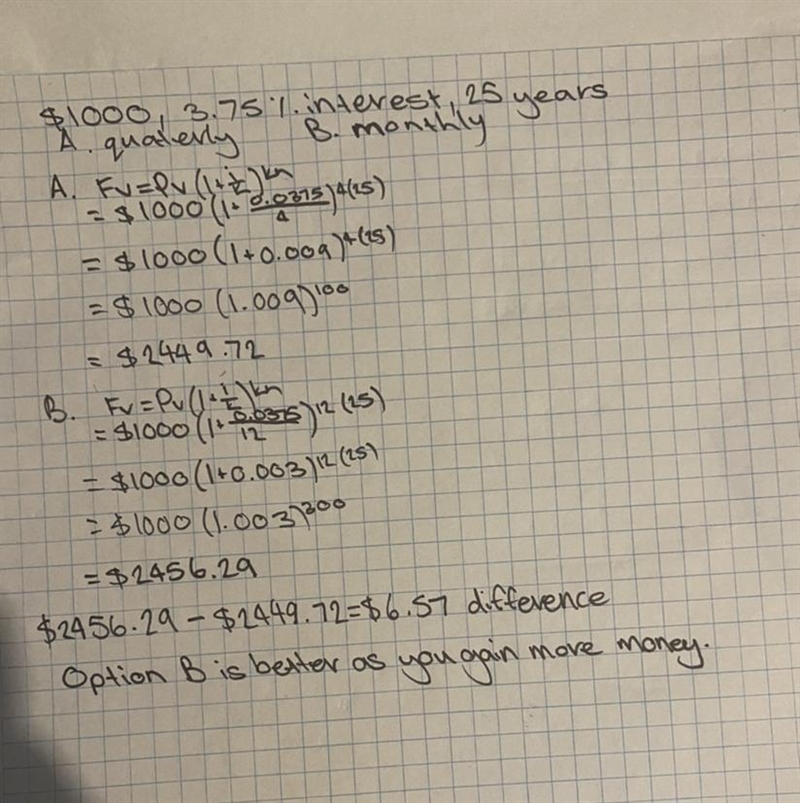 $1000, 3.75% interest, 25 years
A. quaterly B. monthly
A. FV=PV(1+i/k)^kn
= $1000(1+0.0375/4)^4(25)
= $1000(1+0.009)^4(25)
= $1000(1.009)^100
= $2449.72
B. FV=PV(1+i/k)^kn
= $1000(1+0.0375/12)^12(25)
= $1000(1+0.003)^12(25)
= $1000(1.003)^300
= $2456.29
$2456.29 - $2449.72 = $6.57 difference
Option B is better as you gain more money.